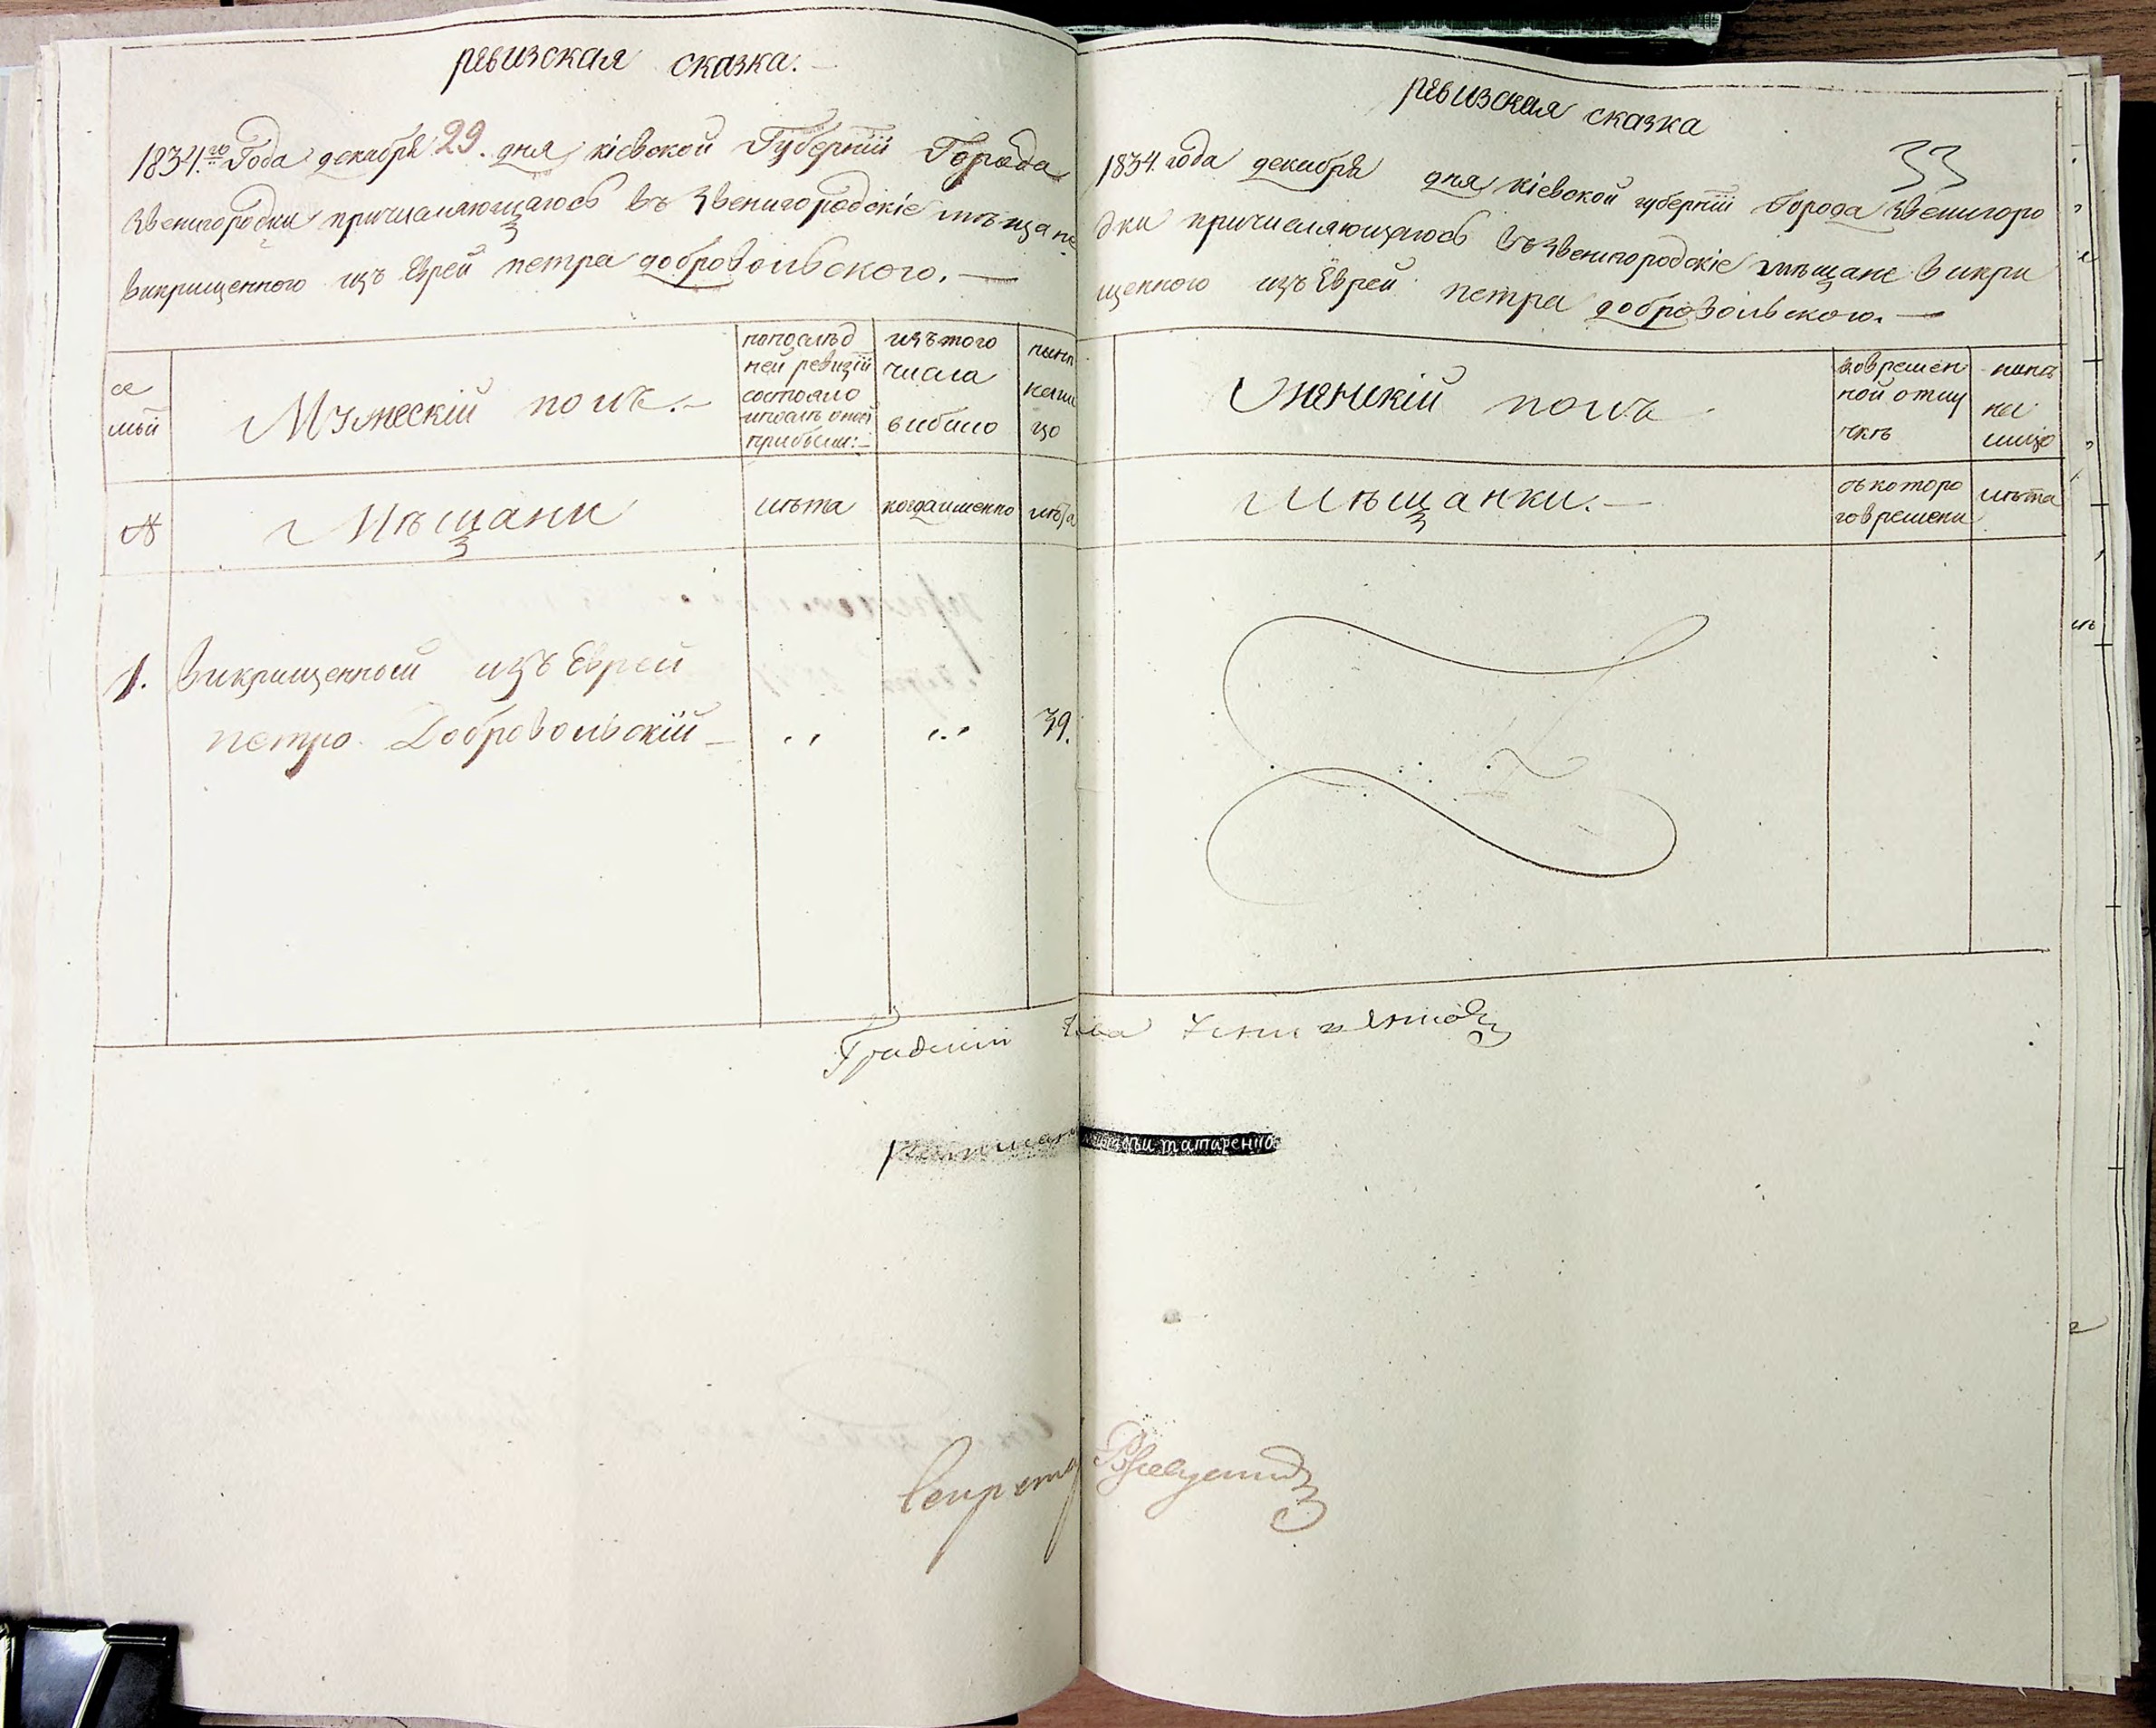 ревизская сказка.
1834.го Года декабря 29. дня кіевской Губерніи Города
Звенигородки причисляющагось въ Звенигородскіе мѣщане
викрищенного изъ Еврей петра добровольского.
се
мьи
Мужескій полъ.
попослѣд
ней ревизіи
состояло
ипослѣ оной
прибыли:
изътого
числа
вибило
нынѣ
нали
цо
№
Мѣщани
лѣта
когдаименно
лѣта
1. Викрищенный изъ Еврей
петро Добровольскій 39.
ревизская сказка
33
1834. года декабря дня кіевской губерніи Города Звенигоро
дки причисляющагось възвенигородскіе мѣщане викри
щенного изъ Еврей петра добровольского.
Женскій полъ
вовремен
ной отлу
чкѣ
нынѣ
на
лицо
Мѣщанки.
съкоторо
говремени
лѣта
Градскій
татаренко
Секрета